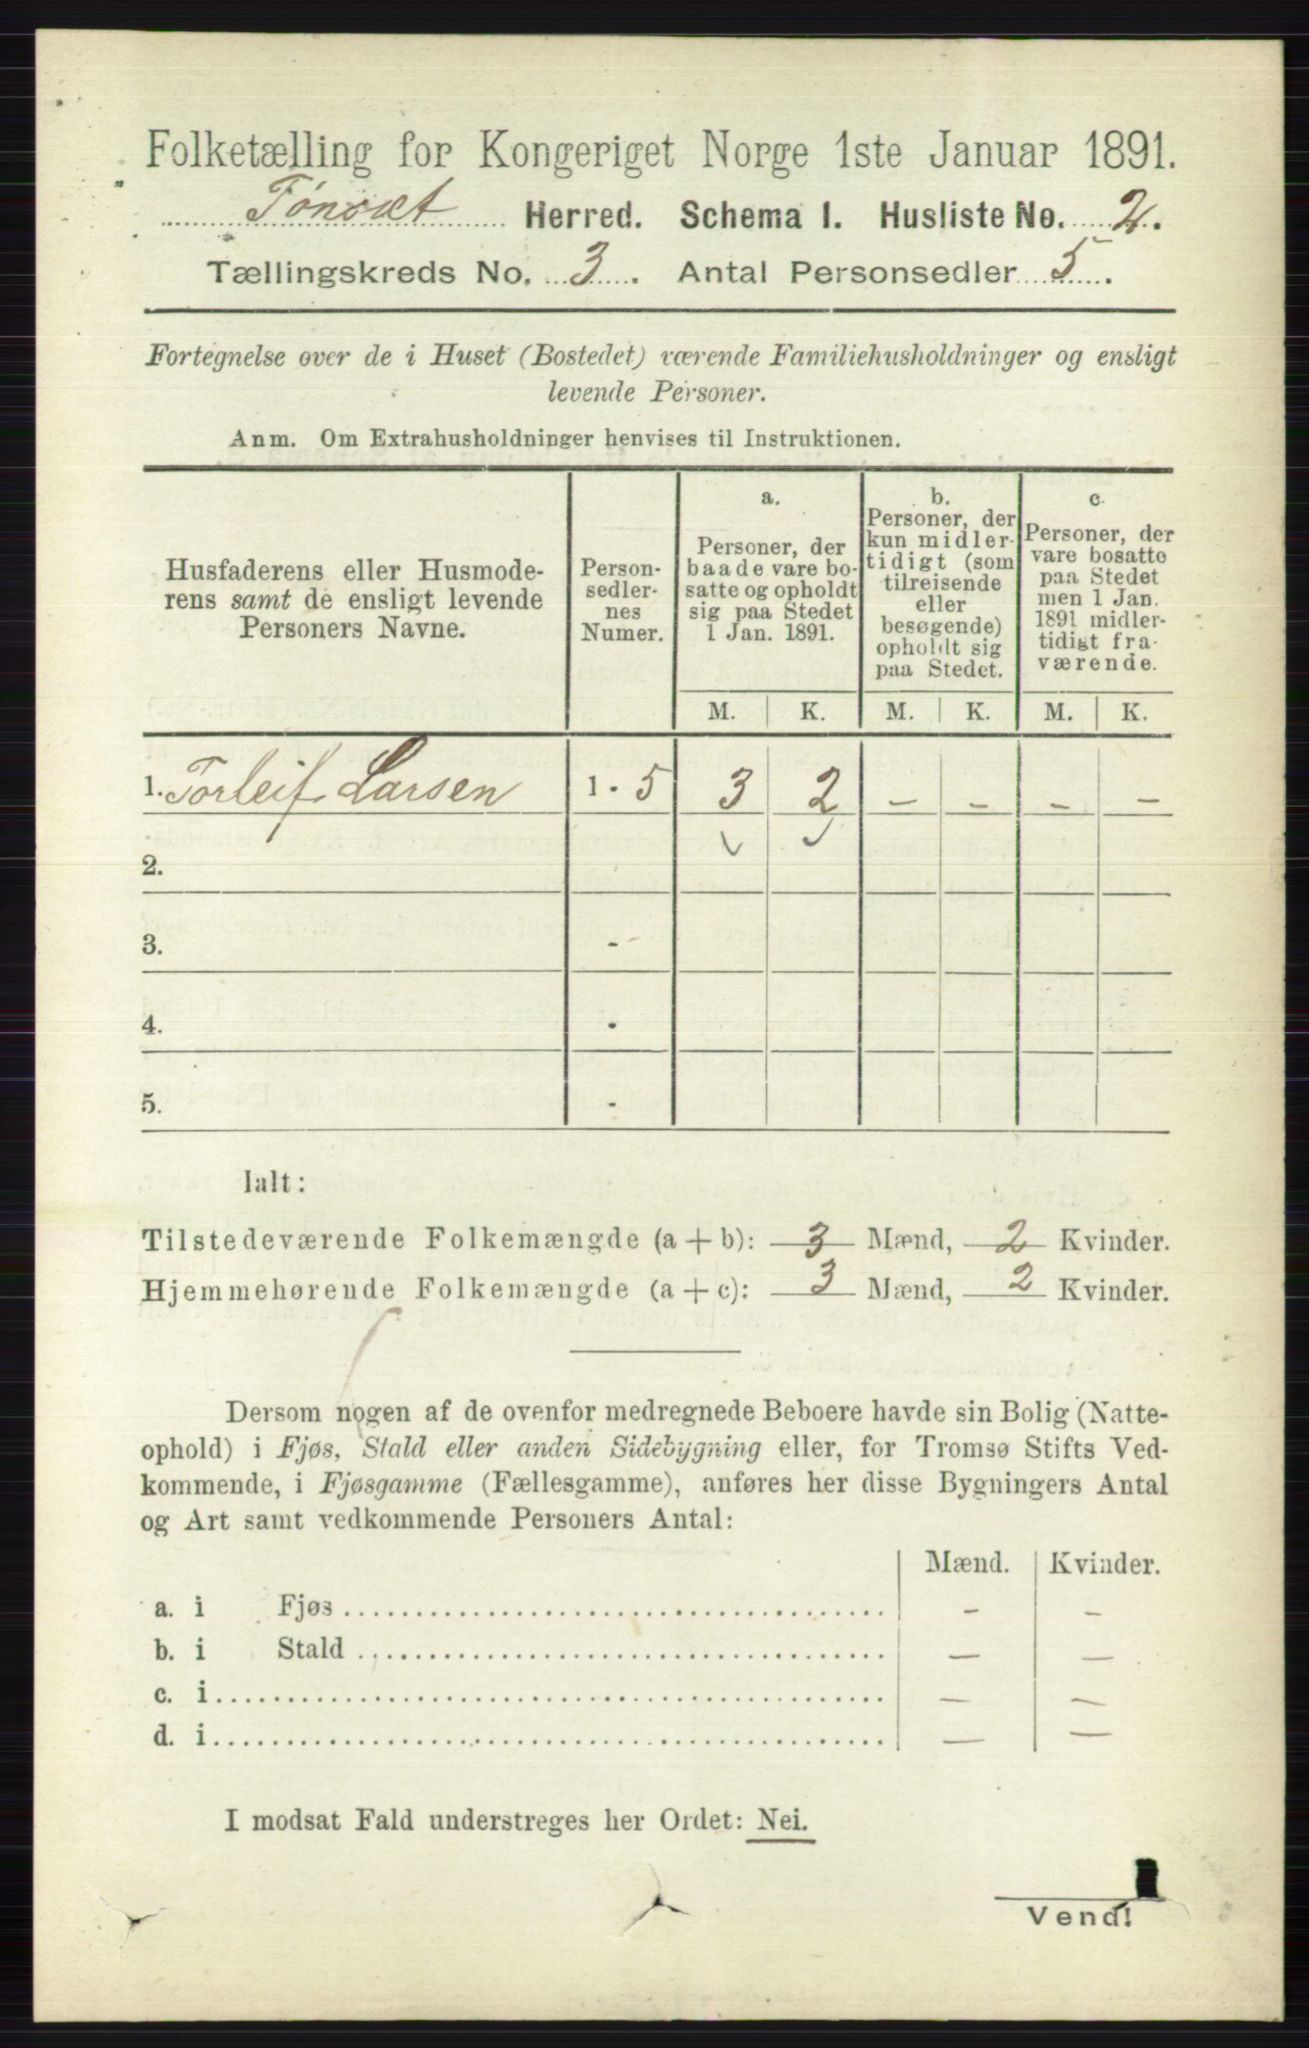 Folketælling for Kongeriget Norge 1ste Januar 1891.
Tønset Herred. Schema 1. Husliste No. 2.
Tællingskreds No. 3. Antal Personsedler 5.
Fortegnelse over de i Huset (Bostedet) værende Familiehusholdninger og ensligt
levende Personer.
Anm. Om Extrahusholdninger henvises til Instruktionen.
Husfaderens eller Husmode-
rens samt de ensligt levende
Personers Navne.
Person-
sedler-
nes
Numer.
a.
Personer, der
baade vare bo-
satte og opholdt
sig paa Stedet
1 Jan. 1891.
b.
Personer, der
kun midler-
tidigt (som
tilreisende
eller
besøgende)
opholdt sig
paa Stedet.
c.
Personer, der
vare bosatte
paa Stedet
men 1 Jan.
1891 midler-
tidigt fra-
værende.
M. K. M. K. M. K.
1. Torleif Larsen 1 - 5 3 2 - - - -
2.
3. -
4. -
5. -
Ialt:
Tilstedeværende Folkemængde (a + b): 3 Mænd, 2 Kvinder.
Hjemmehørende Folkemængde (a + c): 3 Mænd, 2 Kvinder.
Dersom nogen af de ovenfor medregnede Beboere havde sin Bolig (Natte-
ophold) i Fjøs, Stald eller anden Sidebygning eller, for Tromsø Stifts Ved-
kommende, i Fjøsgamme (Fællesgamme), anføres her disse Bygningers Antal
og Art samt vedkommende Personers Antal:
Mænd. Kvinder.
a. i Fjøs - -
b. i Stald - -
c. i - -
d. i - -
I modsat Fald understreges her Ordet: Nei.
Vend!